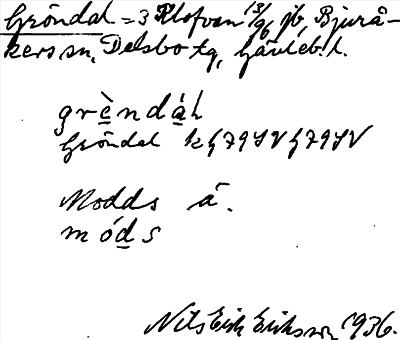 Gröndal = 3 Klofvan 13/96 jb, Bjurå-
kers sn, Delsbo tg, Gävleb. l.
grèndál
Gröndal k G 79 SV G 79 SV
Modds å.
móds
Nils Erik Eriksson 1936.